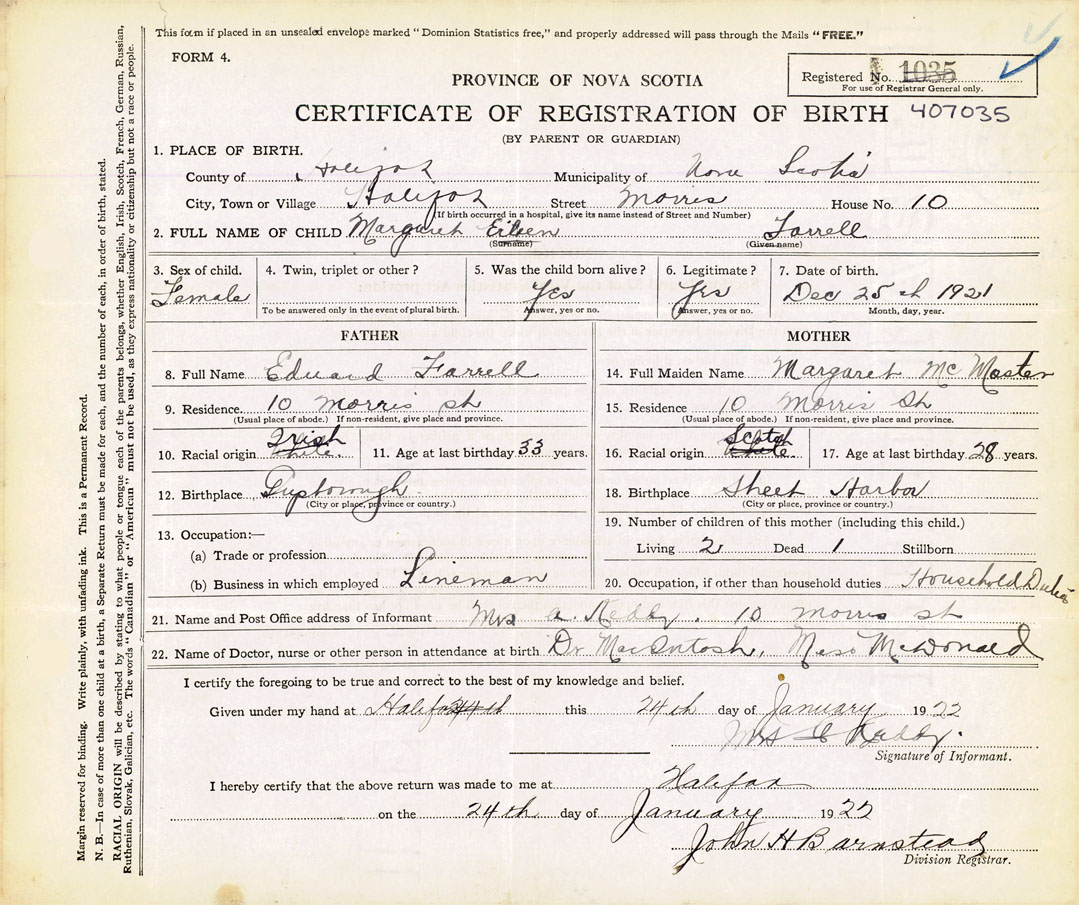 This form if placed in an unsealed envelope marked "Dominion Statistics free," and properly addressed will pass through the Mails "FREE."
FORM 4.
Registered No. 1035
For use of Registrar General only.
PROVINCE OF NOVA SCOTIA
CERTIFICATE OF REGISTRATION OF BIRTH 407035
(BY PARENT OR GUARDIAN)
1. PLACE OF BIRTH.
County of Halifax Municipality of Nova Scotia
City, Town or Village Halifax Street Morris House No. 10
(If birth occurred in a hospital, give its name instead of Street and Number)
2. FULL NAME OF CHILD Margaret Eileen Farrell
(Surname) (Given name)
3. Sex of child. 4. Twin, triplet or other? 5. Was the child born alive? 6. Legitimate? 7. Date of birth.
Female Yes Yes Dec 25th 1921
To be answered only in the event of plural birth. Answer, yes or no. Answer, yes or no. Month, day, year.
FATHER
8. Full Name Edward Farrell
9. Residence. 10 Morris St
(Usual place of abode.) If non-resident, give place and province.
10. Racial origin Irish White. 11. Age at last birthday 33 years.
12. Birthplace Guysborough
(City or place, province or country.)
13. Occupation:—
(a) Trade or profession
(b) Business in which employed Lineman
MOTHER
14. Full Maiden Name Margaret McMaster
15. Residence 10 Morris St
(Usual place of abode.) If non-resident, give place and province.
16. Racial origin Scotch White. 17. Age at last birthday 28 years.
18. Birthplace Sheet Harbor
(City or place, province or country.)
19. Number of children of this mother (including this child.)
Living 2 Dead 1 Stillborn
20. Occupation, if other than household duties Household Duties
21. Name and Post Office address of Informant Mrs A. Reddy. 10 Morris St
22. Name of Doctor, nurse or other person in attendance at birth Dr MacIntosh, Miss McDonald
I certify the foregoing to be true and correct to the best of my knowledge and belief.
Given under my hand at Halifax 24th this 24th day of January 1922
Mrs Reddy.
Signature of Informant.
I hereby certify that the above return was made to me at Halifax
on the 24th day of January 1922
John H Barnstead
Division Registrar.
Margin reserved for binding. Write plainly, with unfading ink. This is a Permanent Record.
N. B.—In case of more than one child at a birth, a Separate Return must be made for each, and the number of each, in order of birth, stated.
RACIAL ORIGIN will be described by stating to what people or tongue each of the parents belongs, whether English, Irish, Scotch, French, German, Russian,
Ruthenian, Slovak, Galician, etc. The words "Canadian" or "American" must not be used, as they express nationality or citizenship but not a race or people.